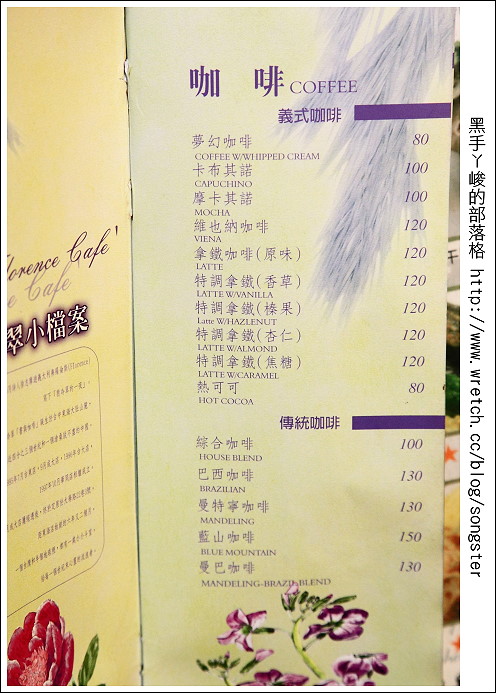 咖 啡 COFFEE
義式咖啡
夢幻咖啡 80
COFFEE W/WHIPPED CREAM
卡布其諾 100
CAPUCHINO
摩卡其諾 100
MOCHA
維也納咖啡 120
VIENA
拿鐵咖啡(原味) 120
LATTE
特調拿鐵(香草) 120
LATTE W/VANILLA
特調拿鐵(榛果) 120
Latte W/HAZLENUT
特調拿鐵(杏仁) 120
LATTE W/ALMOND
特調拿鐵(焦糖) 120
LATTE W/CARAMEL
熱可可 80
HOT COCOA
傳統咖啡
綜合咖啡 100
HOUSE BLEND
巴西咖啡 130
BRAZILIAN
曼特寧咖啡 130
MANDELING
藍山咖啡 150
BLUE MOUNTAIN
曼巴咖啡 130
MANDELING-BRAZIL BLEND
lorence Cafe'
e Cafe
翠小檔案
黑手ㄚ峻的部落格 http://www.wretch.cc/blog/songster